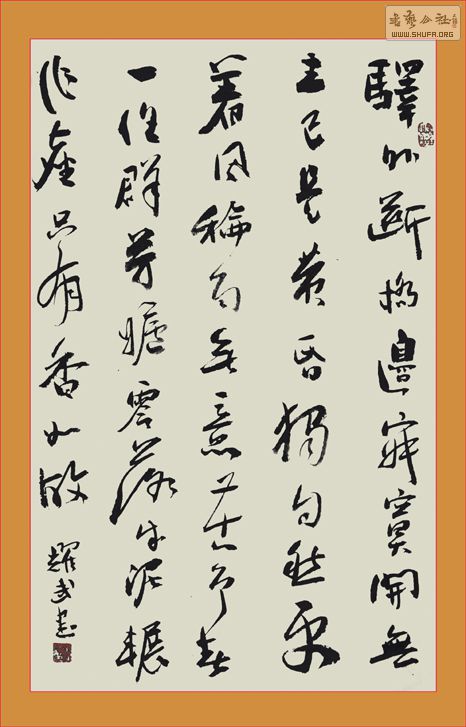 驛外斷橋邊寂寞開無
主已是黄昏獨自愁更
着風和雨無意苦爭春
一任群芳妒零落成泥輾
作塵只有香如故
耀武書
書藝公社
WWW.SHUFA.ORG